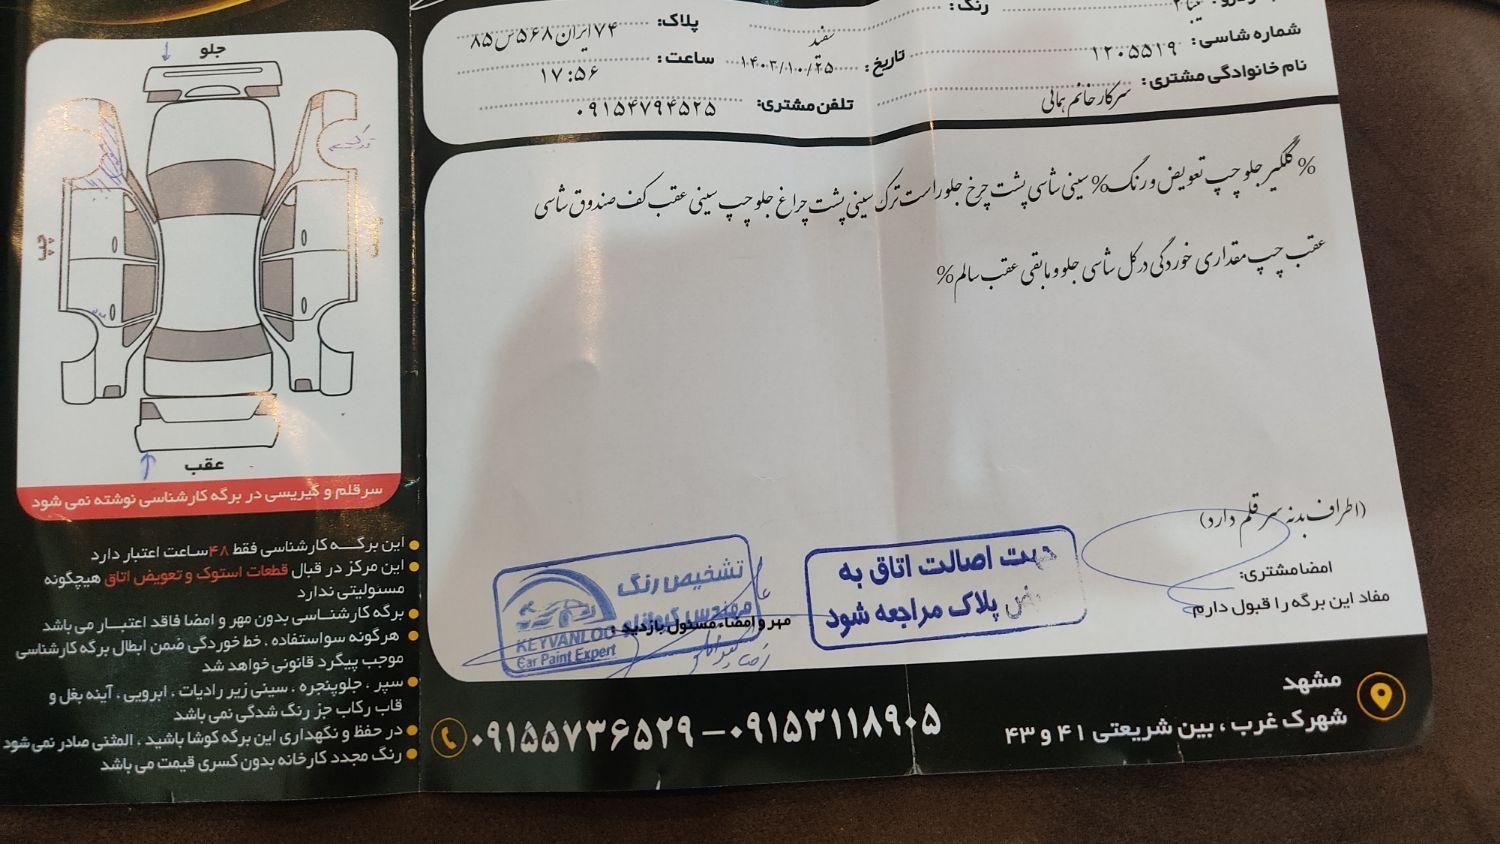 رنگ: سفید
پلاک: ۷۴ ایران ۵۶۸ س ۸۵
شماره شاسی: ۱۲۰۵۵۱۹
تاریخ: ۱۴۰۳/۱۰/۲۵
ساعت: ۱۷:۵۶
نام خانوادگی مشتری: سرکار خانم همائی
تلفن مشتری: ۰۹۱۵۴۷۹۴۵۲۵
% گلگیر جلو چپ تعویض و رنگ % سینی شاسی پشت چرخ جلو راست ترک سینی پشت چراغ جلو چپ سینی عقب کف صندوق شاسی
عقب چپ مقداری خوردگی در کل شاسی جلو و مابقی عقب سالم %
(اطراف بدنه سر قلم دارد)
امضا مشتری:
مفاد این برگه را قبول دارم
اصالت اتاق به
پلاک مراجعه شود
تشخیص رنگ
مهندس
KEYVANLOO
Car Paint Expert
مهر و امضاء مسئول بازدید :
جلو
چپ
عقب
سرقلم و گیریسی در برگه کارشناسی نوشته نمی شود
این برگه کارشناسی فقط ۴۸ ساعت اعتبار دارد
این مرکز در قبال قطعات استوک و تعویض اتاق هیچگونه
مسئولیتی ندارد
برگه کارشناسی بدون مهر و امضا فاقد اعتبار می باشد
هرگونه سواستفاده ، خط خوردگی ضمن ابطال برگه کارشناسی
موجب پیگرد قانونی خواهد شد
سپر ، جلوپنجره ، سینی زیر رادیات ، ابرویی ، آینه بغل و
قاب رکاب جز رنگ شدگی نمی باشد
در حفظ و نگهداری این برگه کوشا باشید ، المثنی صادر نمی شود
رنگ مجدد کارخانه بدون کسری قیمت می باشد
۰۹۱۵۵۷۳۶۵۲۹ – ۰۹۱۵۳۱۱۸۹۰۵
مشهد
شهرک غرب ، بین شریعتی ۴۱ و ۴۳